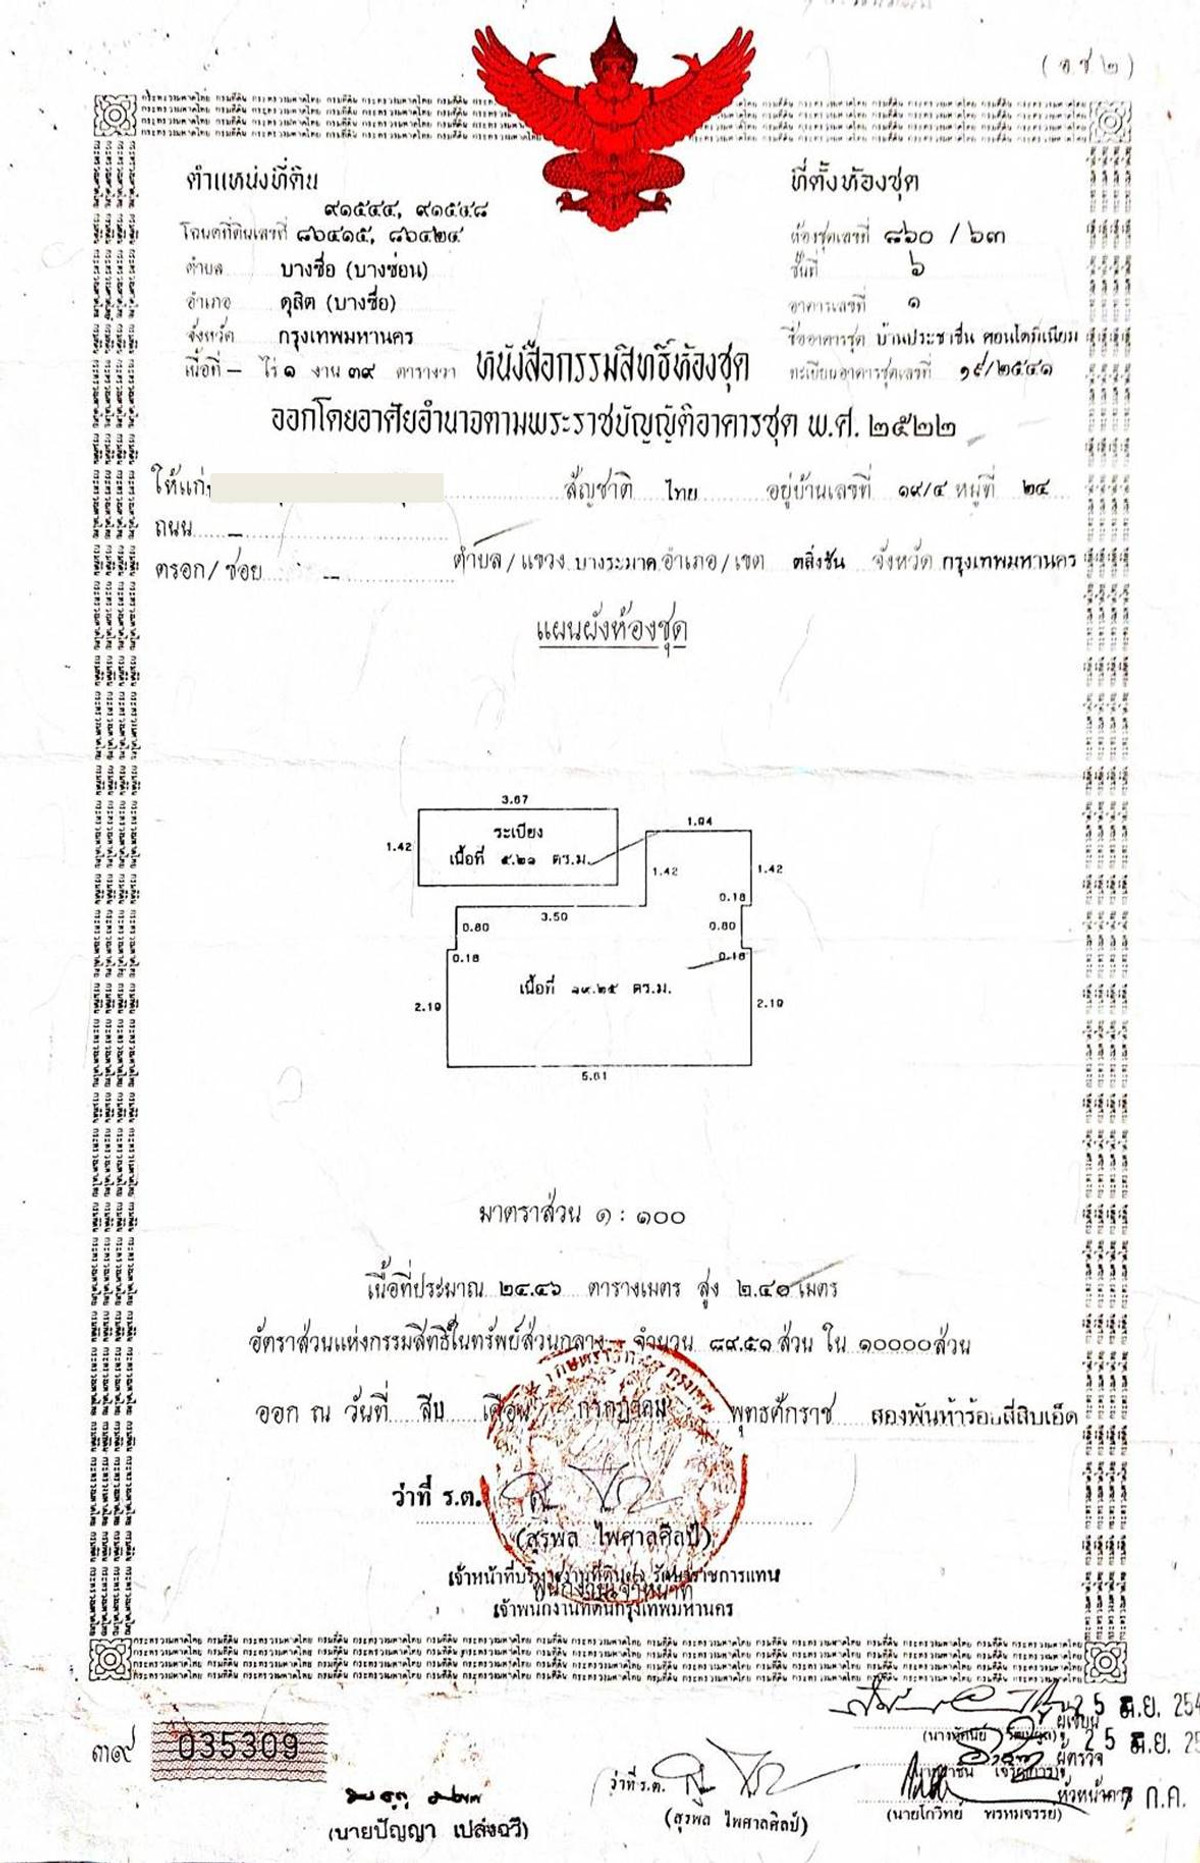 (อ.ช.๒)
ตำแหน่งที่ดิน
๙๑๕๔๔, ๙๑๕๔๘
โฉนดที่ดินเลขที่ ๘๖๔๑๕, ๘๖๔๒๔
ตำบล บางซื่อ (บางซ่อน)
อำเภอ ดุสิต (บางซื่อ)
จังหวัด กรุงเทพมหานคร
เนื้อที่ – ไร่ ๑ งาน ๓๙ ตารางวา
ที่ตั้งห้องชุด
ห้องชุดเลขที่ ๘๖๐ / ๖๓
ชั้นที่ ๖
อาคารเลขที่ ๑
ชื่ออาคารชุด บ้านประชาชื่น คอนโดมิเนียม
ทะเบียนอาคารชุดเลขที่ ๑๙/๒๕๔๑
หนังสือกรรมสิทธิ์ห้องชุด
ออกโดยอาศัยอำนาจตามพระราชบัญญัติอาคารชุด พ.ศ. ๒๕๒๒
ให้แก่ สัญชาติ ไทย อยู่บ้านเลขที่ ๑๙/๔ หมู่ที่ ๒๔
ถนน –
ตรอก/ซอย -- ตำบล/แขวง บางระมาด อำเภอ/เขต ตลิ่งชัน จังหวัด กรุงเทพมหานคร
แผนผังห้องชุด
3.67
ระเบียง
1.42
เนื้อที่ ๕.๒๑ ตร.ม.
1.94
1.42
1.42
0.18
3.50
0.80
0.80
0.18
0.18
เนื้อที่ ๑๙.๒๕ ตร.ม.
2.19
2.19
5.61
มาตราส่วน ๑ : ๑๐๐
เนื้อที่ประมาณ ๒๔.๔๖ ตารางเมตร สูง ๒.๔๐ เมตร
อัตราส่วนแห่งกรรมสิทธิ์ในทรัพย์ส่วนกลาง จำนวน ๘๙.๕๑ ส่วน ใน ๑๐๐๐๐ส่วน
ออก ณ วันที่ สิบ เดือน กรกฎาคม พุทธศักราช สองพันห้าร้อยสี่สิบเอ็ด
ว่าที่ ร.ต.
(สุรพล ไพศาลศิลป์)
เจ้าพนักงานที่ดินกรุงเทพมหานคร
๓๙
035309
(นายปัญญา เปล่งฉวี)
ว่าที่ ร.ต.
(สุรพล ไพศาลศิลป์)
ผู้เขียน
ผู้ตรวจ
(นายโกวิทย์ พรหมจรรย์)